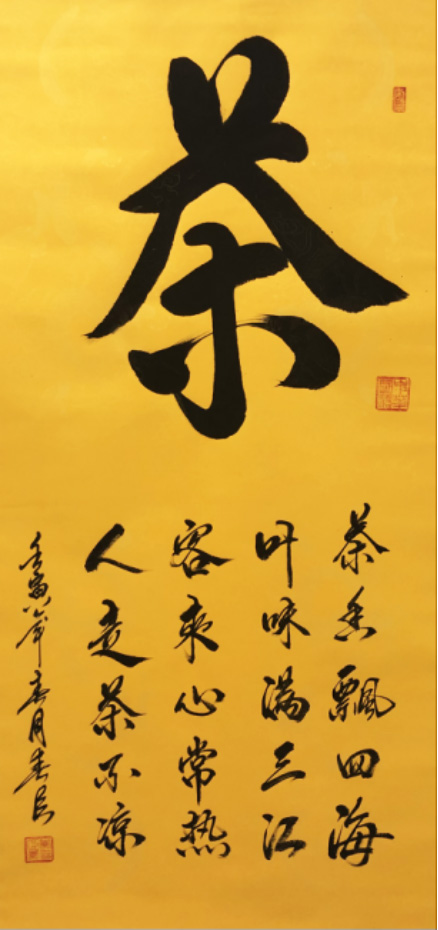 茶
茶香飘四海
叶味满三江
客来心常热
人走茶不凉
壬寅年春月